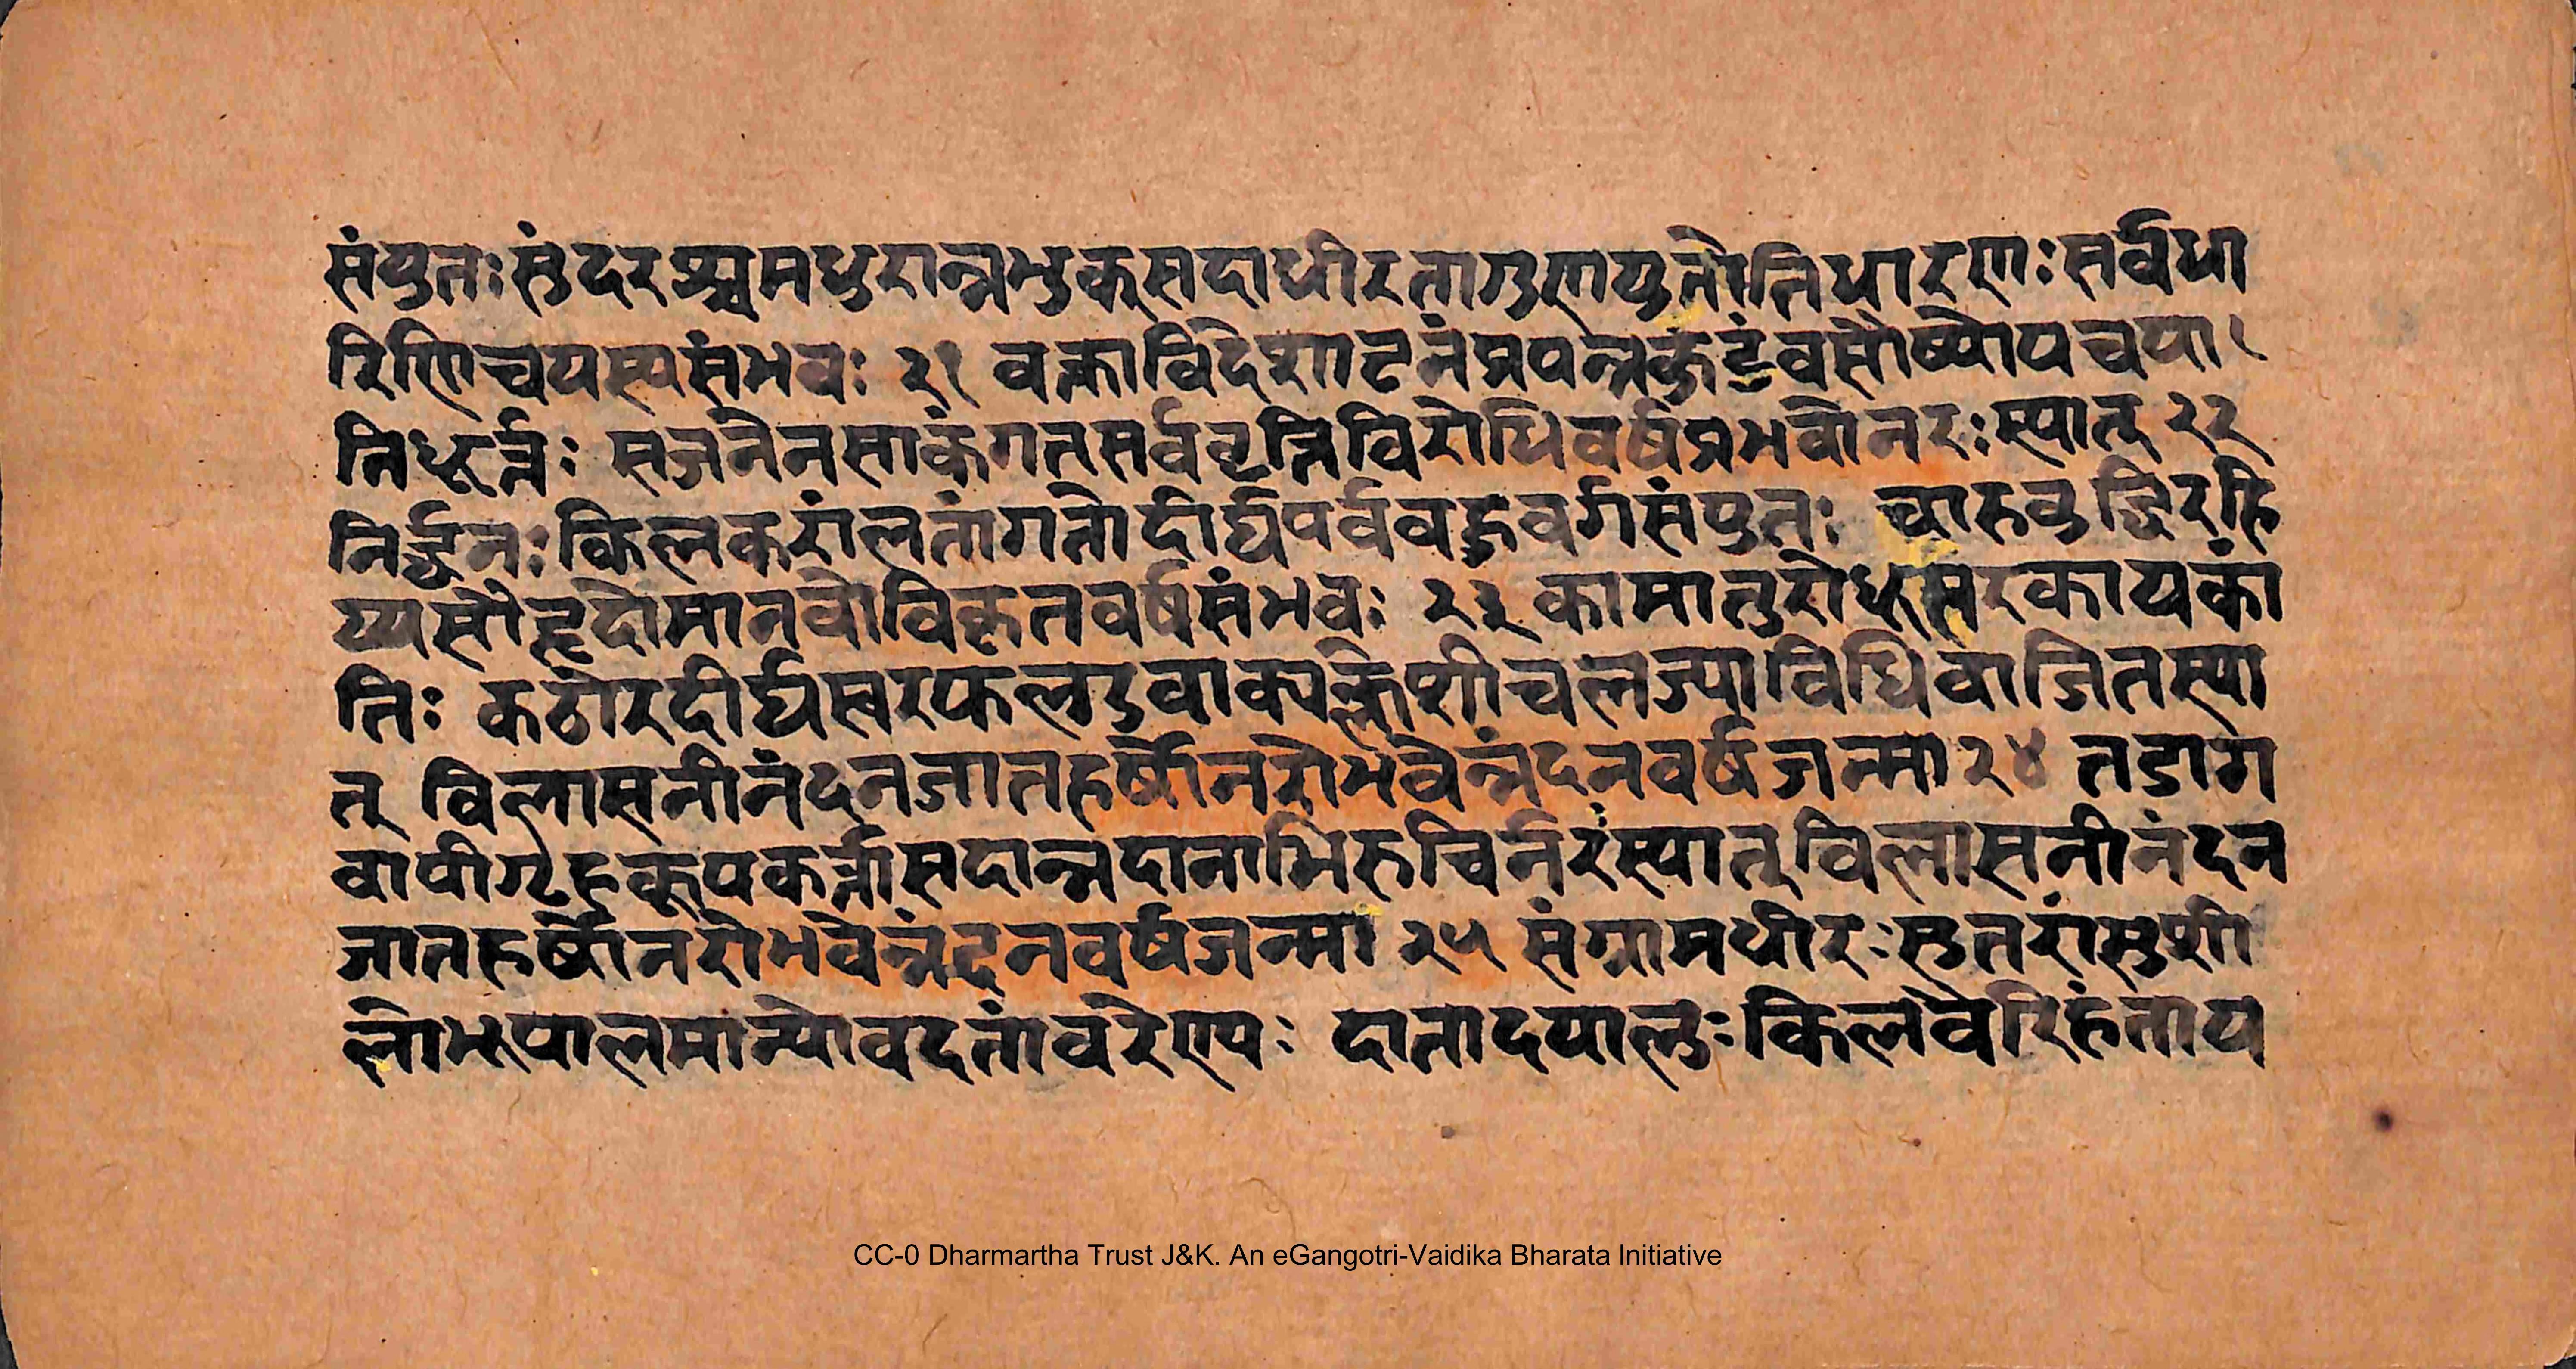 संयुतः सुंदरश्च मधुरान्नभुक् सदा धीरतागुणयुतो निधारणः सर्वधा
रिणि च यस्य संभवः २१ वक्ता विदेशाटनं प्रपन्न कुटुंव सौख्योपचया
ति धूर्त्तः सजनेन साकं गतसर्ववृत्ति विरोधिवर्षप्रभवो नरः स्यात् २२
निर्द्धनः किल करांलतां गतो दीर्घपर्ववद्गुवर्गसंयुतः चारुवुद्धिरहि
य्यसौहृदो मानवो विकृतवर्षसंभवः २३ कामातुरो धूसरकायकां
तिः कठोरदीर्घस्वरफलडवाक्य क्लेशी चलज्या विधिवाजित स्या
त् विलासनीनंदनजातहर्षो नरो भवेन्नंदनवर्षजन्मा २४ तडाग
वापीगृहकूपकर्त्ता सदान्नदानाभिरुचिर्नरंस्यात् विलासनीनंदन
जातहर्षो नरो भवेन्नंदनवर्षजन्मा २५ संग्रामधीरः सुतरां सुशी
लो भूपालमान्यो वदतां वरेण्यः दाता दयालुः किल वैरिहंता य
CC-0 Dharmartha Trust J&K. An eGangotri-Vaidika Bharata Initiative